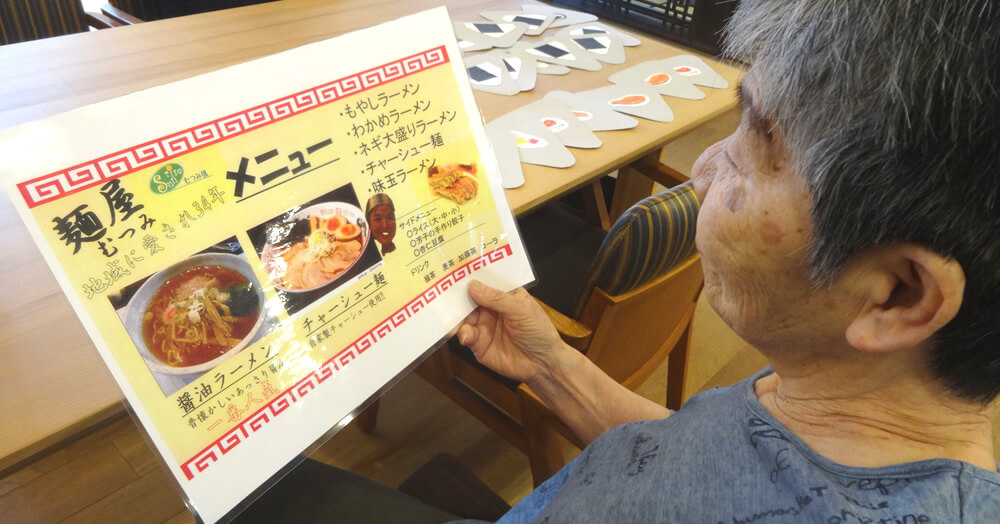 麺屋
むつみ
むつみ橋
地域に愛され34年
メニュー
・もやしラーメン
・わかめラーメン
・ネギ大盛りラーメン
・チャーシュー麺
・味玉ラーメン
サイドメニュー
○ライス(大・中・小)
の手作り餃子
○杏仁豆腐
ドリンク
緑茶 麦茶 加藤茶 コーラ
チャーシュー麺
自家製チャーシュー使用!!
醤油ラーメン
昔懐かしいあっさり醤油
一番人気